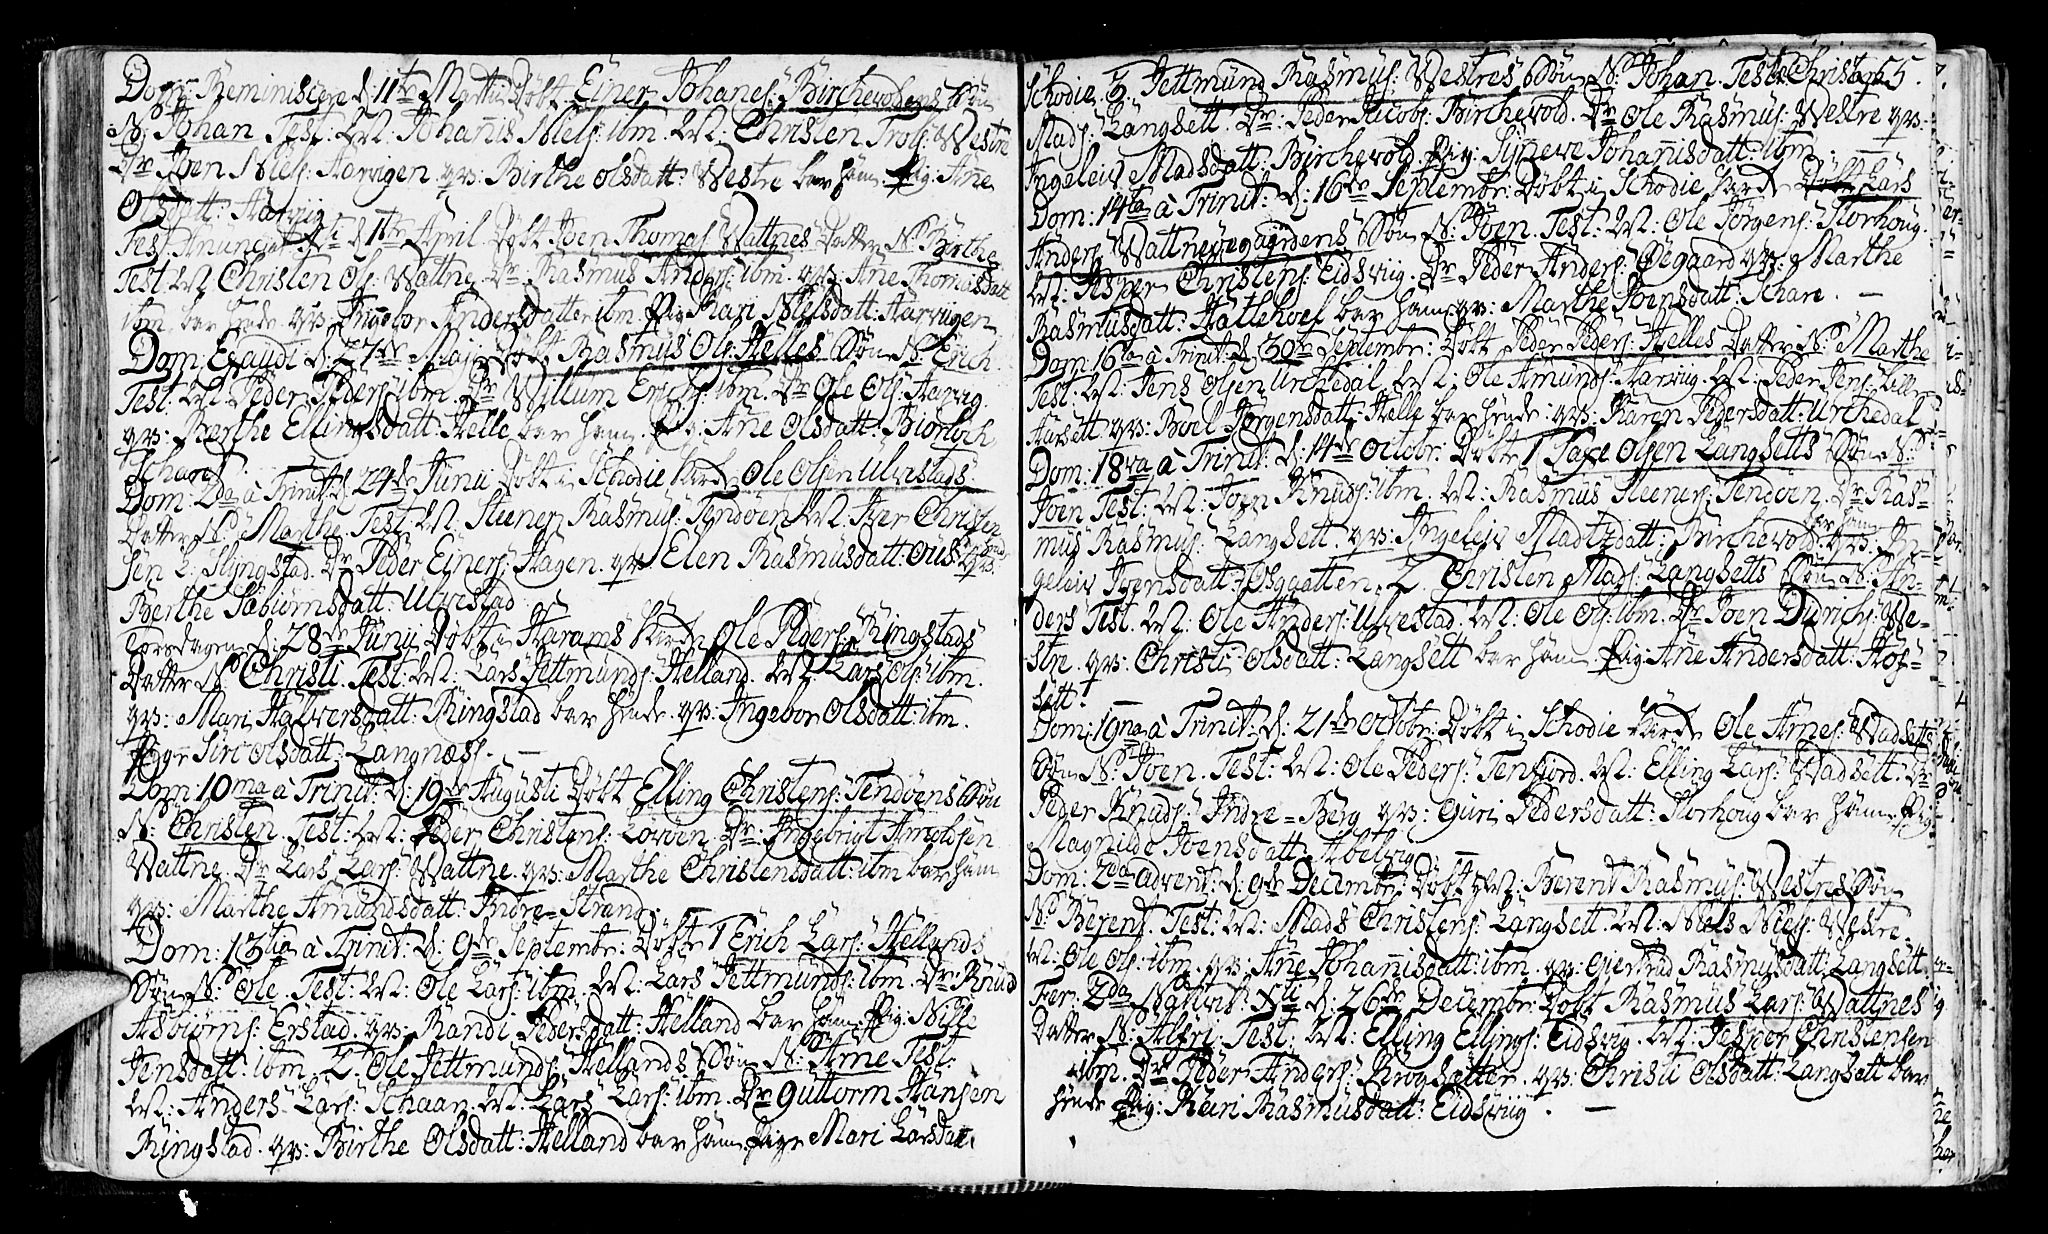 Dom: Reminiscere d: 11te Martii Döbt Einer Johanes: Birchevolds Sön
N: Johan Test: M: Johanis Niels: ibm. M: Christen Trols: Westre
Dr: Joen Niels: Aarvigen qv: Birthe Olsdatt: Westre bar ham Pig: Ane
Olsdatt: Aarvig
Fest: Anunciat: d: 1te April Döbt Joen Thomas: Wattnes Datter N: Birthe
Test: M: Christen Ols: Wattne Dr: Rasmus Anders: ibm. qv: Ane Thomasdatt
ibm. bar hende. qv: Ingebor Andersdatter ibm. Pig Mari Nielsdatt: Aarviigen
Dom: Exaudi d: 27de Maji Döbt Rasmus Ols: Helles Sön N: Erich
Test: M: Peder Peders: ibm. Dr: Willum Erichs: ibm. Dr: Ole Ols: Aarvig
qv: Berthe Ellingsdatt: Helle bar ham. Pig: Ane Olsdatt: Biorloch
Schare
Dom: 2da à Trinit: d: 24de Junii Döbt i Schodie Kirke Ole Olsen Ulvestads
Datter N: Marthe Test: M: Steener Rasmus: Tendöen M: Iver Christen
sen Slyngstad. Dr: Peder Einers: Hagen. qv: Elen Rasmusdatt: Ous qv:
Berthe Sæbiörnsdatt: Ulvestad
Torsdagen d: 28de Junii Döbt i Harams Kirke Ole Peders: Ringstads
Datter N: Christi. Test: M: Lars Jettmunds: Helland. M: Lars Ols: ibm.
qv: Mari Halversdatt: Ringstad bar hende. qv: Ingebor Olsdatt: ibm.
Pige Siri Olsdatt: Langnæss. —
Dom: 10ma à Trinit: d: 19de Augusti Döbt Elling Christens: Tendöens Sön
N: Christen. Test: M: Peder Christens: Lovöen. Dr: Ingebrigt Arnoldsen
Wattne. Dr Lars Lars: Wattne. qv: Marthe Christensdatt: ibm bar ham
qv: Marthe Amundsdatt: Indre-Strand.
Dom: 13tia à Trinit: d: 9de Septembr: Döbt 1 Erich Lars: Hellands
Sön N: Ole. Test: M: Ole Lars: ibm. M: Lars Jettmunds: ibm. Dr: Knud
Asbiörns: Erstad. qv: Randi Pedersdatt: Helland bar ham Pig: Nille
Jensdatt: ibm. 2. Ole Jettmunds: Hellands Sön N: Arne Test:
M: Anders Lars: Schaar. M: Lars Lars: ibm. Dr Guttorm Hansen
Ringstad. qv: Birthe Olsdatt: Helland bar ham Pige Mari Larsdatt:
Schodie. 3. Jettmund Rasmus: Westres Sön N: Johan. Test: M: Christen 55.
Mads: Langsett. Dr: Peder Jacobs: Birchevold. Dr Ole Rasmus: Westre qv:
Ingeleiv Madsdatt: Birchevold Pig: Synneve Johanisdatt: ibm. —
Dom: 14ta à Trinit: d: 16de Septembr: Döbt i Schodie Kirke Döbt Lars
Anders: Wattneöegaardens Sön N: Joen. Test: M: Ole Jörgens: Storhoug.
M: Jesper Christens: Eidsviig. Dr: Peder Anders: Öegaard qv: Marthe
Rasmusdatt: Hattehoel bar ham. qv: Marthe Joensdatt: Schare. —
Dom: 16ta à Trinit: d: 30te Septembr: Döbt Peder Peders: Helles Datter N: Marthe
Test: M: Jens Olsen Urchedal M: Ole Amunds: Aarviig. M: Peder Jens: Lille-
Aursett. qv: Boel Jörgensdatt: Helle bar hende. qv: Karen Pedersdatt: Urchedal
Dom: 18va à Trinit: d: 14de Octobr: Döbt 1 Taxe Olsen Langsetts Sön N:
Joen Test: M: Joen Knuds: ibm. M: Rasmus Steeners: Tendöen. Dr Ras-
mus Rasmus: Langsett. qv: Ingeleiv Madtzdatt: Birchevold bar ham qv: In-
geleiv Joensdatt: 2. Christen Mads: Langsetts Sön N: An-
ders Test. M: Ole Anders: Ulvestad. M: Ole Ols: ibm. Dr Joen Didrichs: We-
stre. qv: Christi Olsdatt: Langsett bar ham. Pig: Ane Andersdatt: Hof-
sett. —
Dom: 19na à Trinit: d: 21de Octobr: Döbt i Schodie Kirke Ole Arnes: Wadsetts
Sön N: Joen. Test: M: Ole Peders: Tenfiord. M: Elling Lars: Wadsett. Dr
Peder Knuds: Indre-Berg qv: Guri Pedersdatt: Storhoug bar ham. Pig
Magnilde Joensdatt: Abelvig. —
Dom: 2da Advent: d: 9de Decembr: Döbt M: Berent Rasmus: Westres Sön
N: Berent. Test: M: Mads Christens: Langsett. M: Niels Niels: Westre.
M: Ole Ols: ibm. qv: Ane Johanisdatt: ibm. qv: Giertrud Rasmusdatt: Langsett.
Fer: 2da Nativit: Xti d: 26de Decembr: Döbt Rasmus Lars: Wattnes
Datter N: Test: M: Elling Ellings: Eidsvig. M: Jesper Christensen
ibm. Dr: Peder Anders: Krogsetten. qv: Christi Olsdatt: Langsett bar
hende Pig: Kari Rasmusdatt: Eidsviig. —